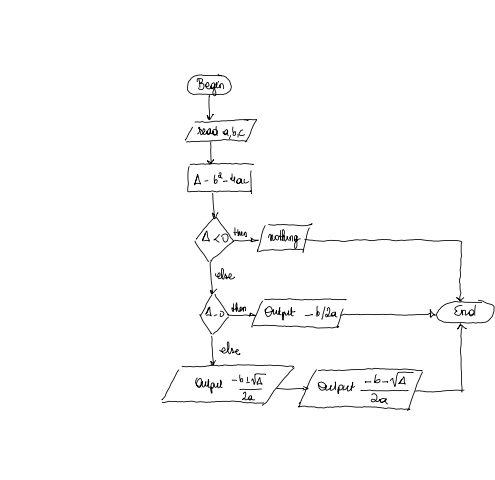 Begin
read a,b,c
Δ = b² - 4ac
Δ < 0
then
nothing
else
Δ = 0
then
Output -b/2a
End
else
Output -b±√Δ / 2a
Output -b-√Δ / 2a